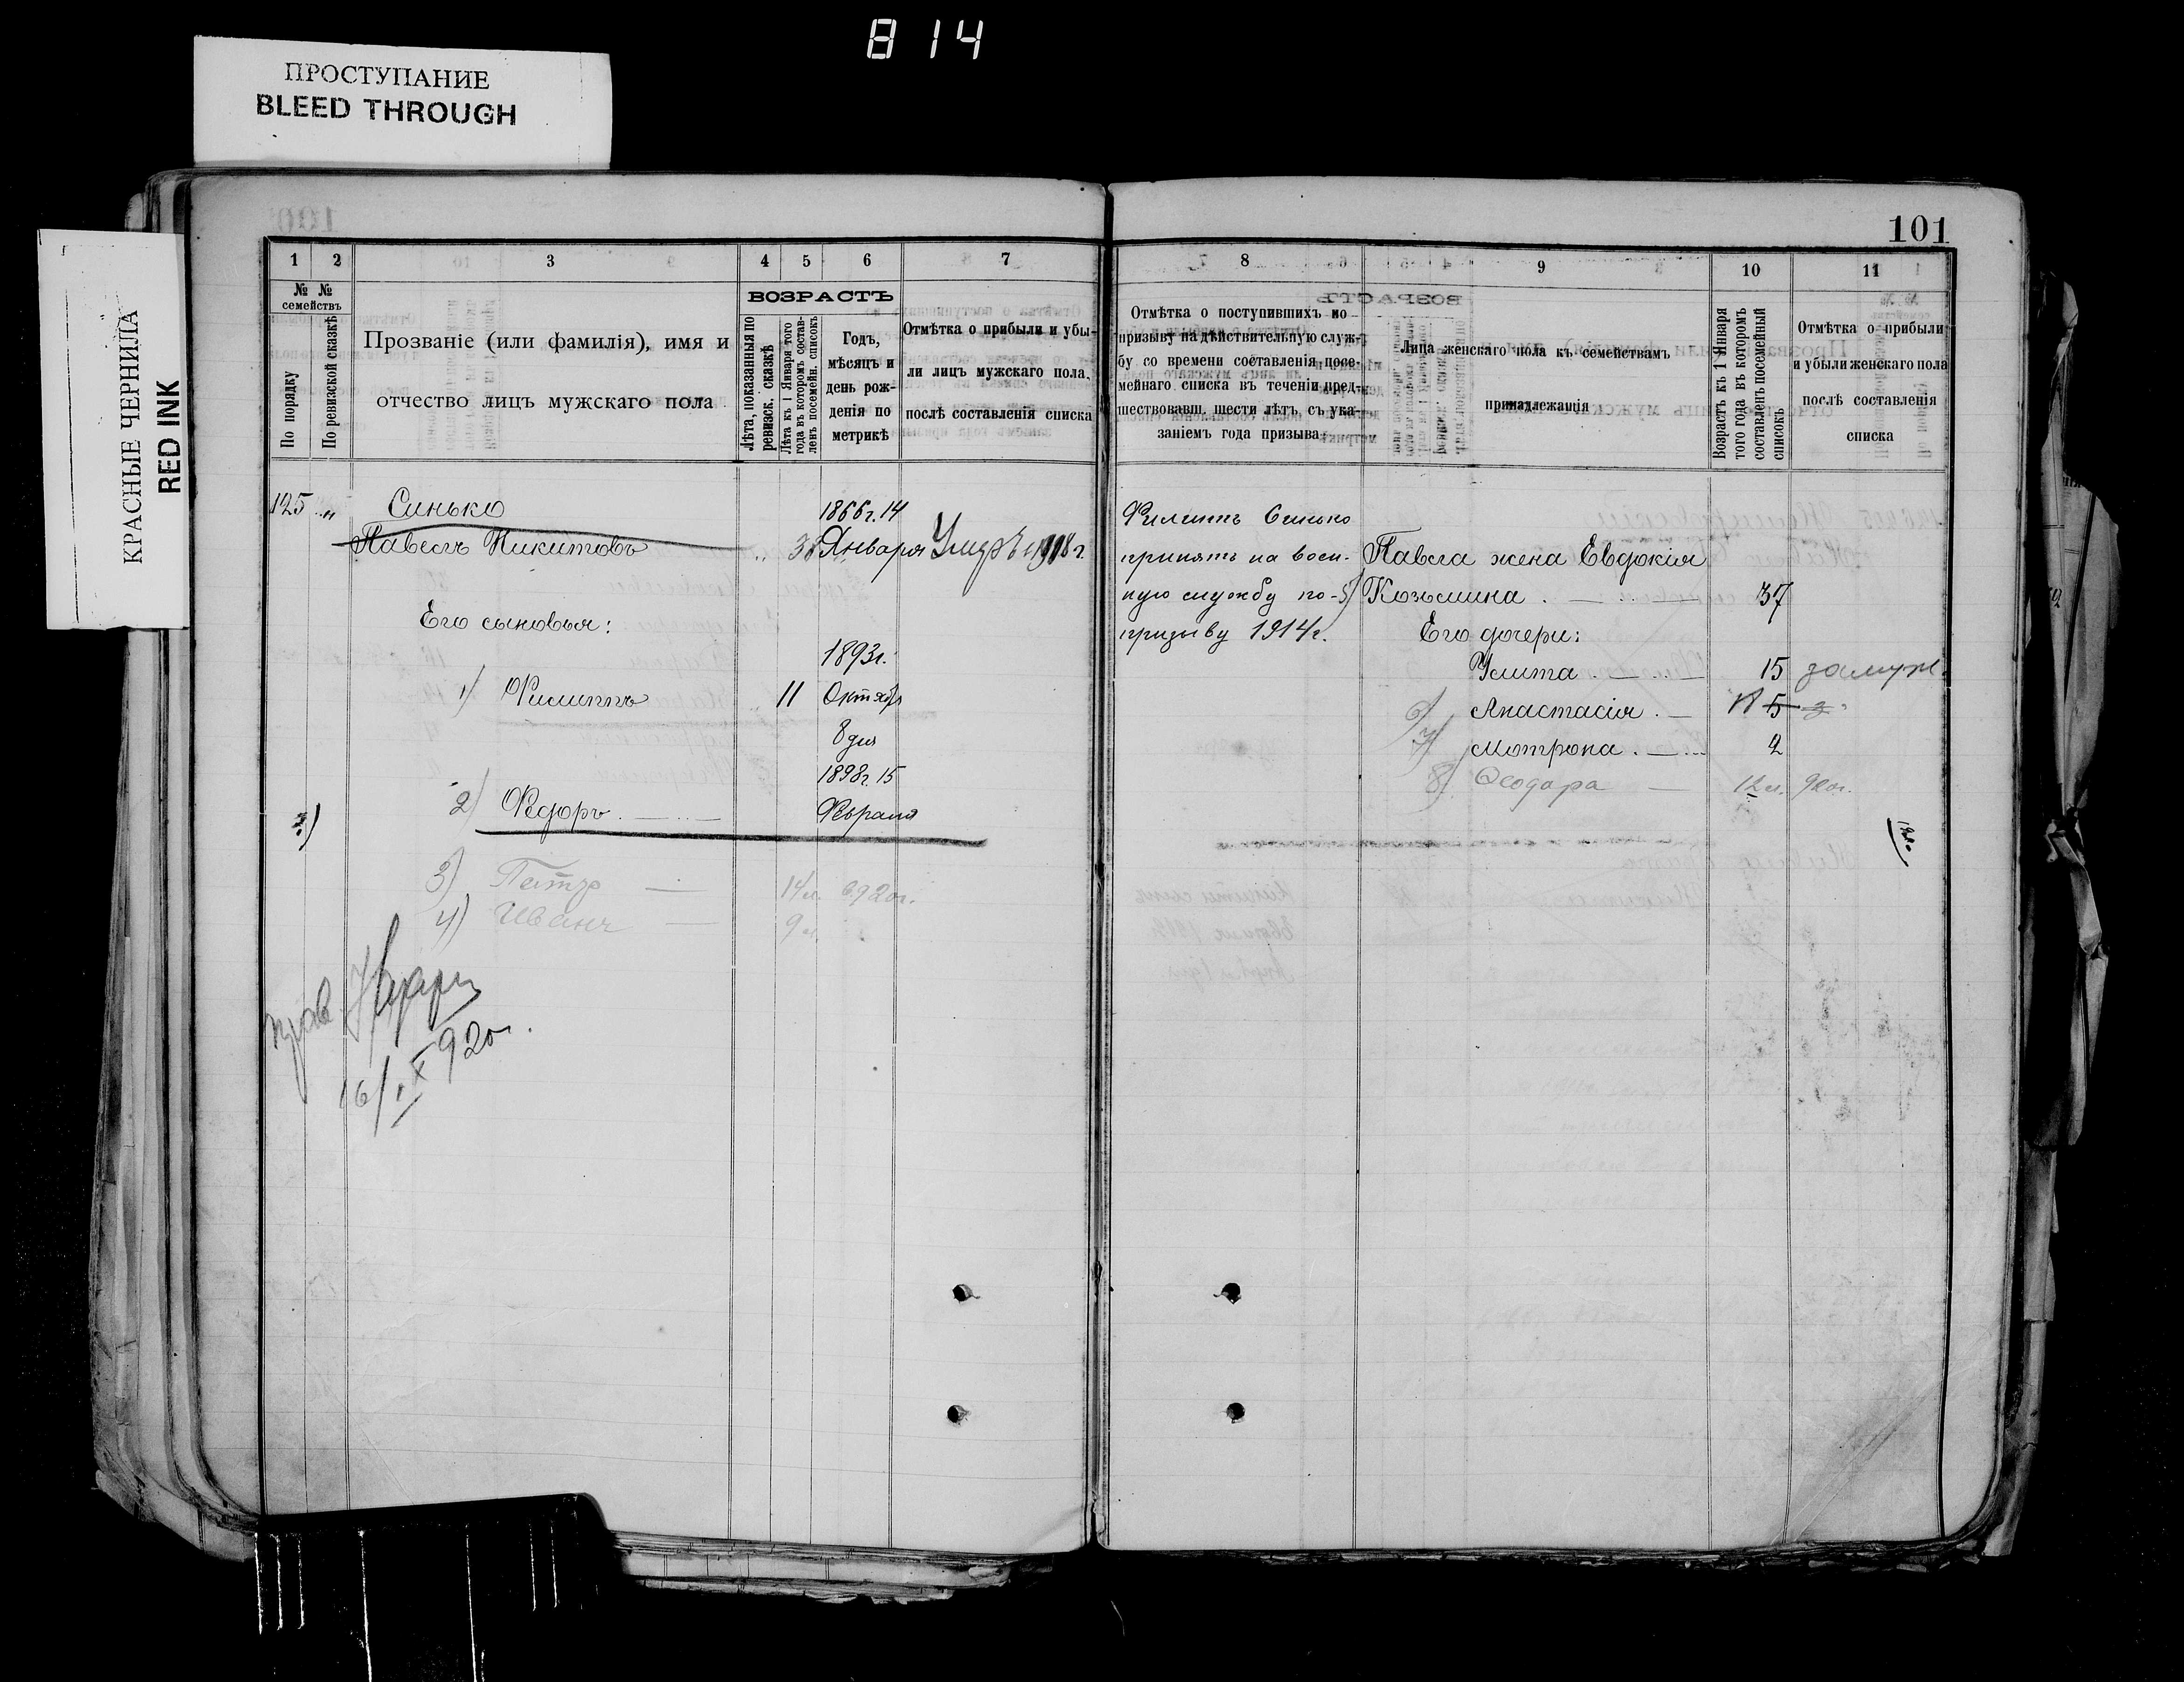 814
ПРОСТУПАНИЕ
BLEED THROUGH
КРАСНЫЕ ЧЕРНИЛА
RED INK
101
1 2 3 4 5 6 7
№ № семействъ
По порядку
По ревизской сказкѣ
Прозваніе (или фамилія), имя и
отчество лицъ мужскаго пола
ВОЗРАСТЪ
Лѣта, показанныя по
ревизск. сказкѣ
Лѣта къ 1 Января того
года въ которомъ состав-
ленъ посемейн. списокъ
Годъ,
мѣсяцъ и
день рож-
денія по
метрикѣ
Отмѣтка о прибыли и убы-
ли лицъ мужскаго пола.
послѣ составленія списка
8 9 10 11
Отмѣтка о поступившихъ по
призыву на дѣйствительную служ-
бу со времени составленія посе-
мейнаго списка въ теченіи пред-
шествовавш. шести лѣтъ, съ ука-
заніемъ года призыва
Лица женскаго пола къ семействамъ
принадлежащія
Возрастъ къ 1 Января
того года въ которомъ
составленъ посемейный
списокъ
Отмѣтка о прибыли
и убыли женскаго пола
послѣ составленія
списка
125 „ Синько 1866 г. 14
Павелъ Никитовъ „ 38 Января
Его сыновья:
1893 г.
1) Филиппъ 11 Октября
8 дня
1898 г. 15
2) Федоръ Февраля
3) Петръ 14 л. 920 г.
4) Иванъ 9 л.
920 г.
Филиппъ Синько
принятъ на воен-
ную службу по
призыву 1914 г.
Павла жена Евдокія
5) Козьмина 37
Его дочери:
Улита 15 замуж.
6) Анастасія 5
7) Мотрона 2
8) Ѳеодора 12 л. 920 г.